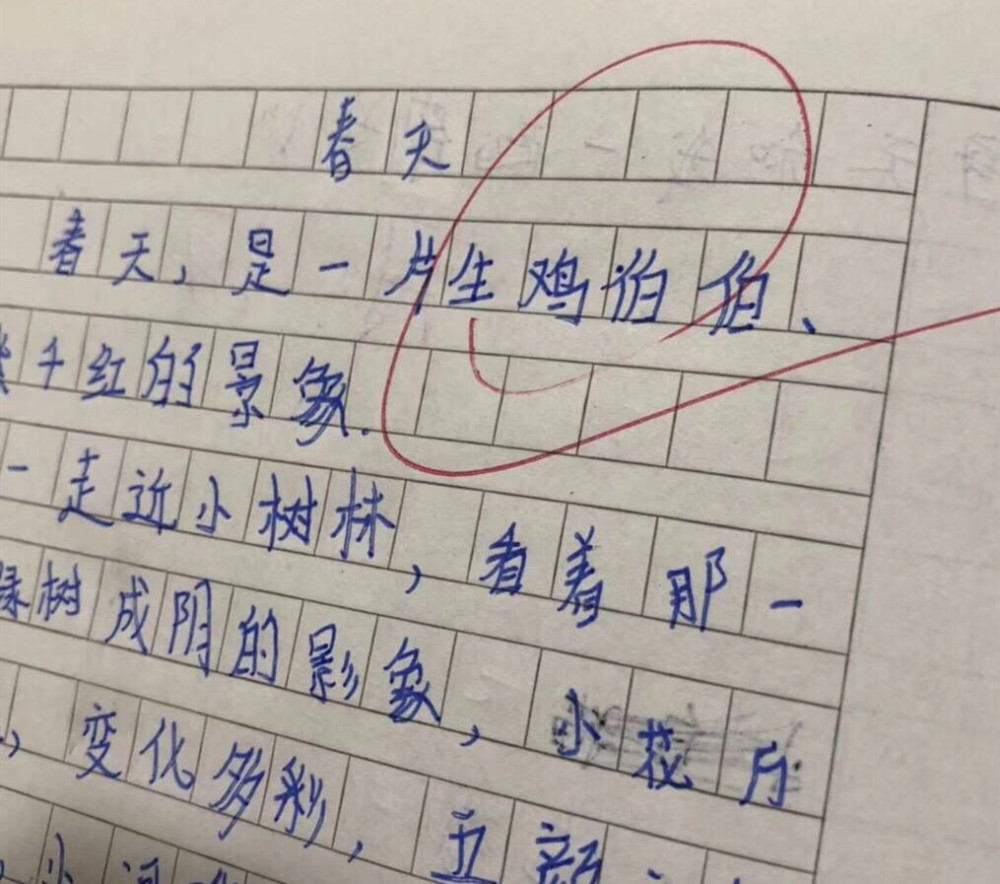 春天
春天,是一片生鸡伯伯、
千红的景象.
一走近小树林,看着那一
树成阴的影象,小花
,变化多彩,五颜